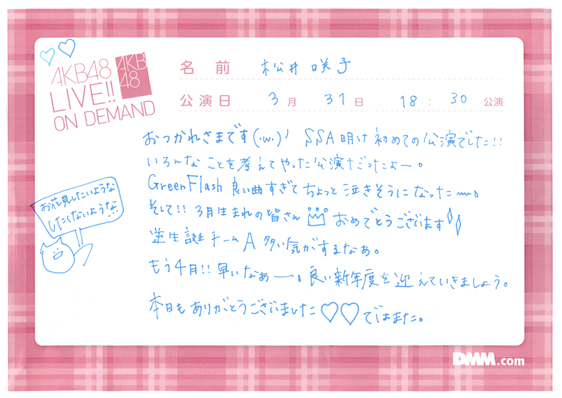 AKB48
LIVE!!
ON DEMAND
AKB
48
名 前 松井咲子
公演日 3月 31日 18:30公演
おつかれさまです(・w・)ノ SSA明け初めての公演でした!!
いろんなことを考えてやった公演だったよー。
GreenFlash 良い曲すぎてちょっと泣きそうになった〰。
そして!! 3月生まれの皆さん おめでとうございます
逆生誕チームA 多い気がするなあ。
もう4月!! 早いなぁー。良い新年度を迎えていきましょう。
本日もありがとうございました♡♡ではまた。
お花見したいような
したくないような!!
DMM.com